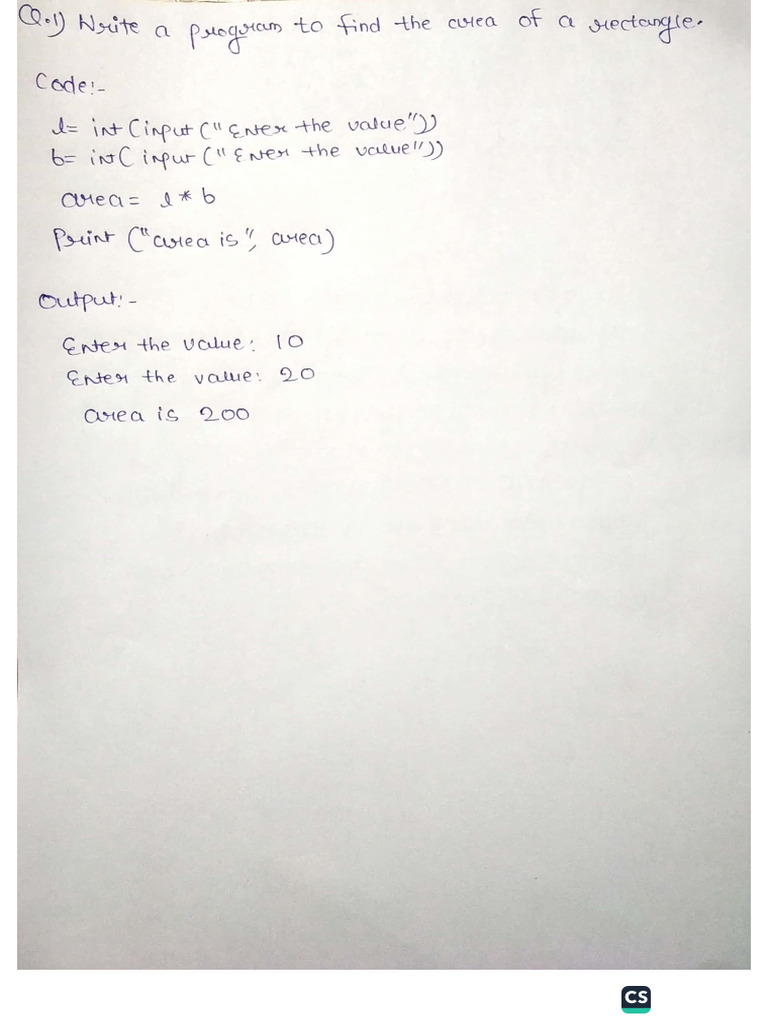 Q.1) Write a program to find the area of a rectangle.
Code:-
l= int(input("Enter the value"))
b= int(input("Enter the value"))
area= l*b
Print ("area is", area)
Output:-
Enter the value: 10
Enter the value: 20
area is 200
CS